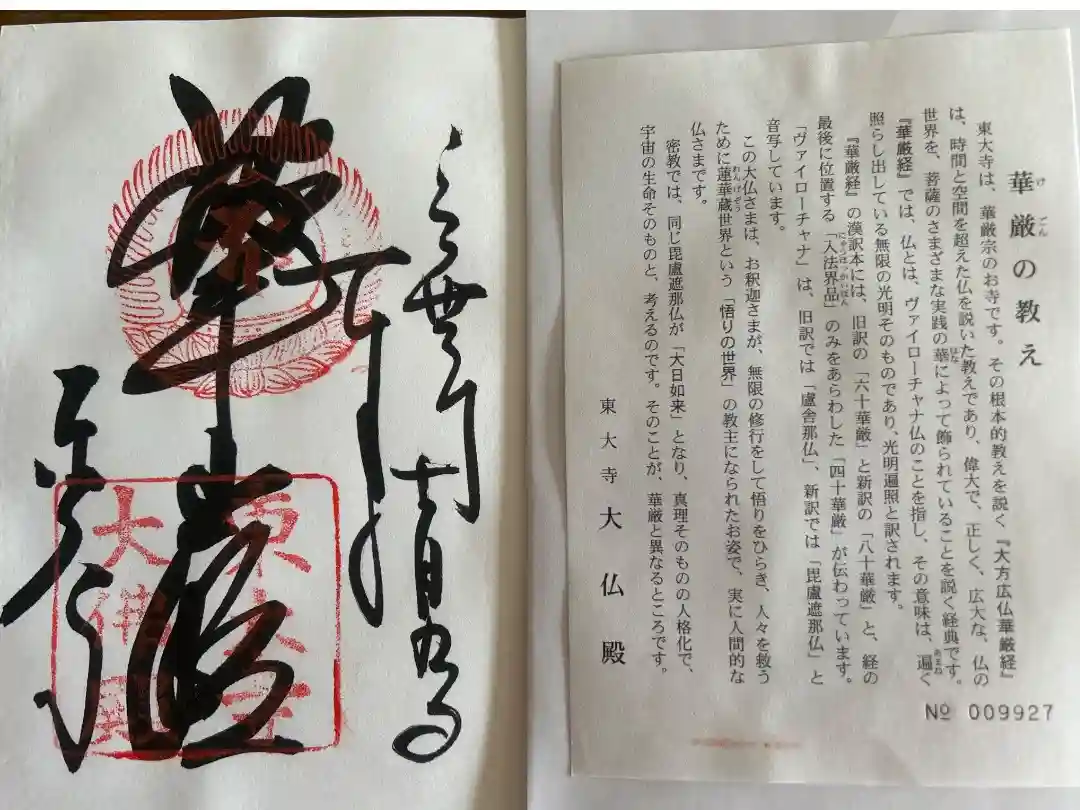 華厳
東大寺
東大寺
大佛殿
華厳の教え
けごん
東大寺は、華厳宗のお寺です。その根本的教えを説く『大方広仏華厳経』
は、時間と空間を超えた仏を説いた教えであり、偉大で、正しく、広大な、仏の
世界を、菩薩のさまざまな実践の華によって飾られていることを説く経典です。
はな
『華厳経』では、仏とは、ヴァイローチャナ仏のことを指し、その意味は、遍く
あまね
照らし出している無限の光明そのものであり、光明遍照と訳されます。
『華厳経』の漢訳本には、旧訳の「六十華厳」と新訳の「八十華厳」と、経の
最後に位置する「入法界品」のみをあらわした「四十華厳」が伝わっています。
にゅうほっかいぼん
「ヴァイローチャナ」は、旧訳では「盧舎那仏」、新訳では「毘盧遮那仏」と
音写しています。
この大仏さまは、お釈迦さまが、無限の修行をして悟りをひらき、人々を救う
ために蓮華蔵世界という「悟りの世界」の教主になられたお姿で、実に人間的な
れんげぞう
仏さまです。
密教では、同じ毘盧遮那仏が「大日如来」となり、真理そのものの人格化で、
宇宙の生命そのものと、考えるのです。そのことが、華厳と異なるところです。
東大寺 大仏殿
№ 009927